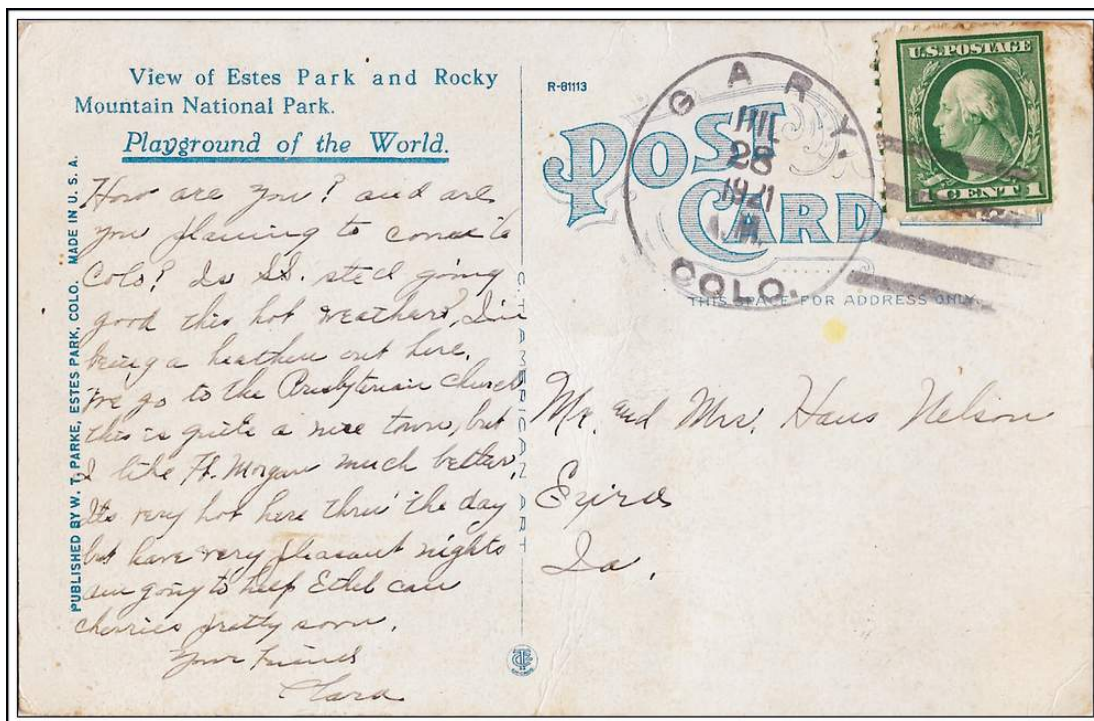 View of Estes Park and Rocky
Mountain National Park.
Playground of the World.
PUBLISHED BY W. T. PARKE, ESTES PARK, COLO. MADE IN U. S. A.
How are you? and are
you planing to come to
Colo? Is S.S. still going
good this hot weather? I'm
being a heathen out here.
We go to the Presbyterian church
this is quite a nice town, but
I like Ft. Morgan much better,
Its very hot here thru' the day
but have very pleasant nights
am going to help Ethel can
cherries pretty soon.
Your Friend
Clara
C. T. AMERICAN ART
R-81113
POST
CARD
GARY.
28
1921
M.
COLO.
U.S. POSTAGE
1 CENT 1
THIS SPACE FOR ADDRESS ONLY.
Mr. and Mrs. Hans Nelson
Exira
Ia.